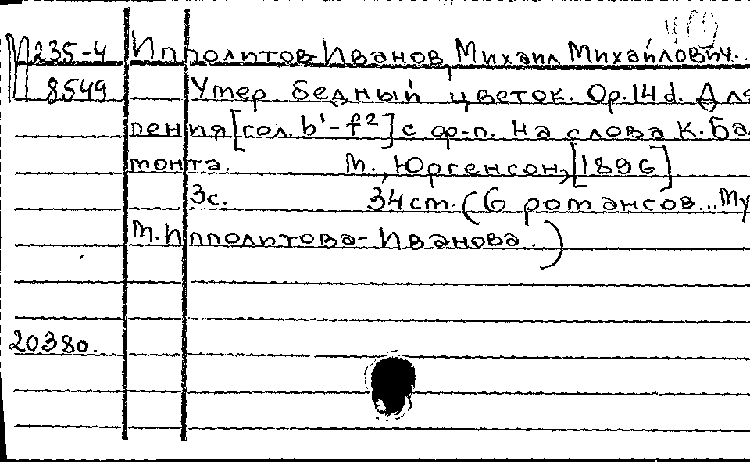 М235-4 Ипполитов-Иванов, Михаил Михайлович.
8549 Умер бедный цветок. Op.14d. Для
пения [сол. b'-f²] с ф-п. На слова К. Ба
монта. М., Юргенсон, [1896]
3с. 34 см. (6 романсов... Му
М. Ипполитова-Иванова)
20380.